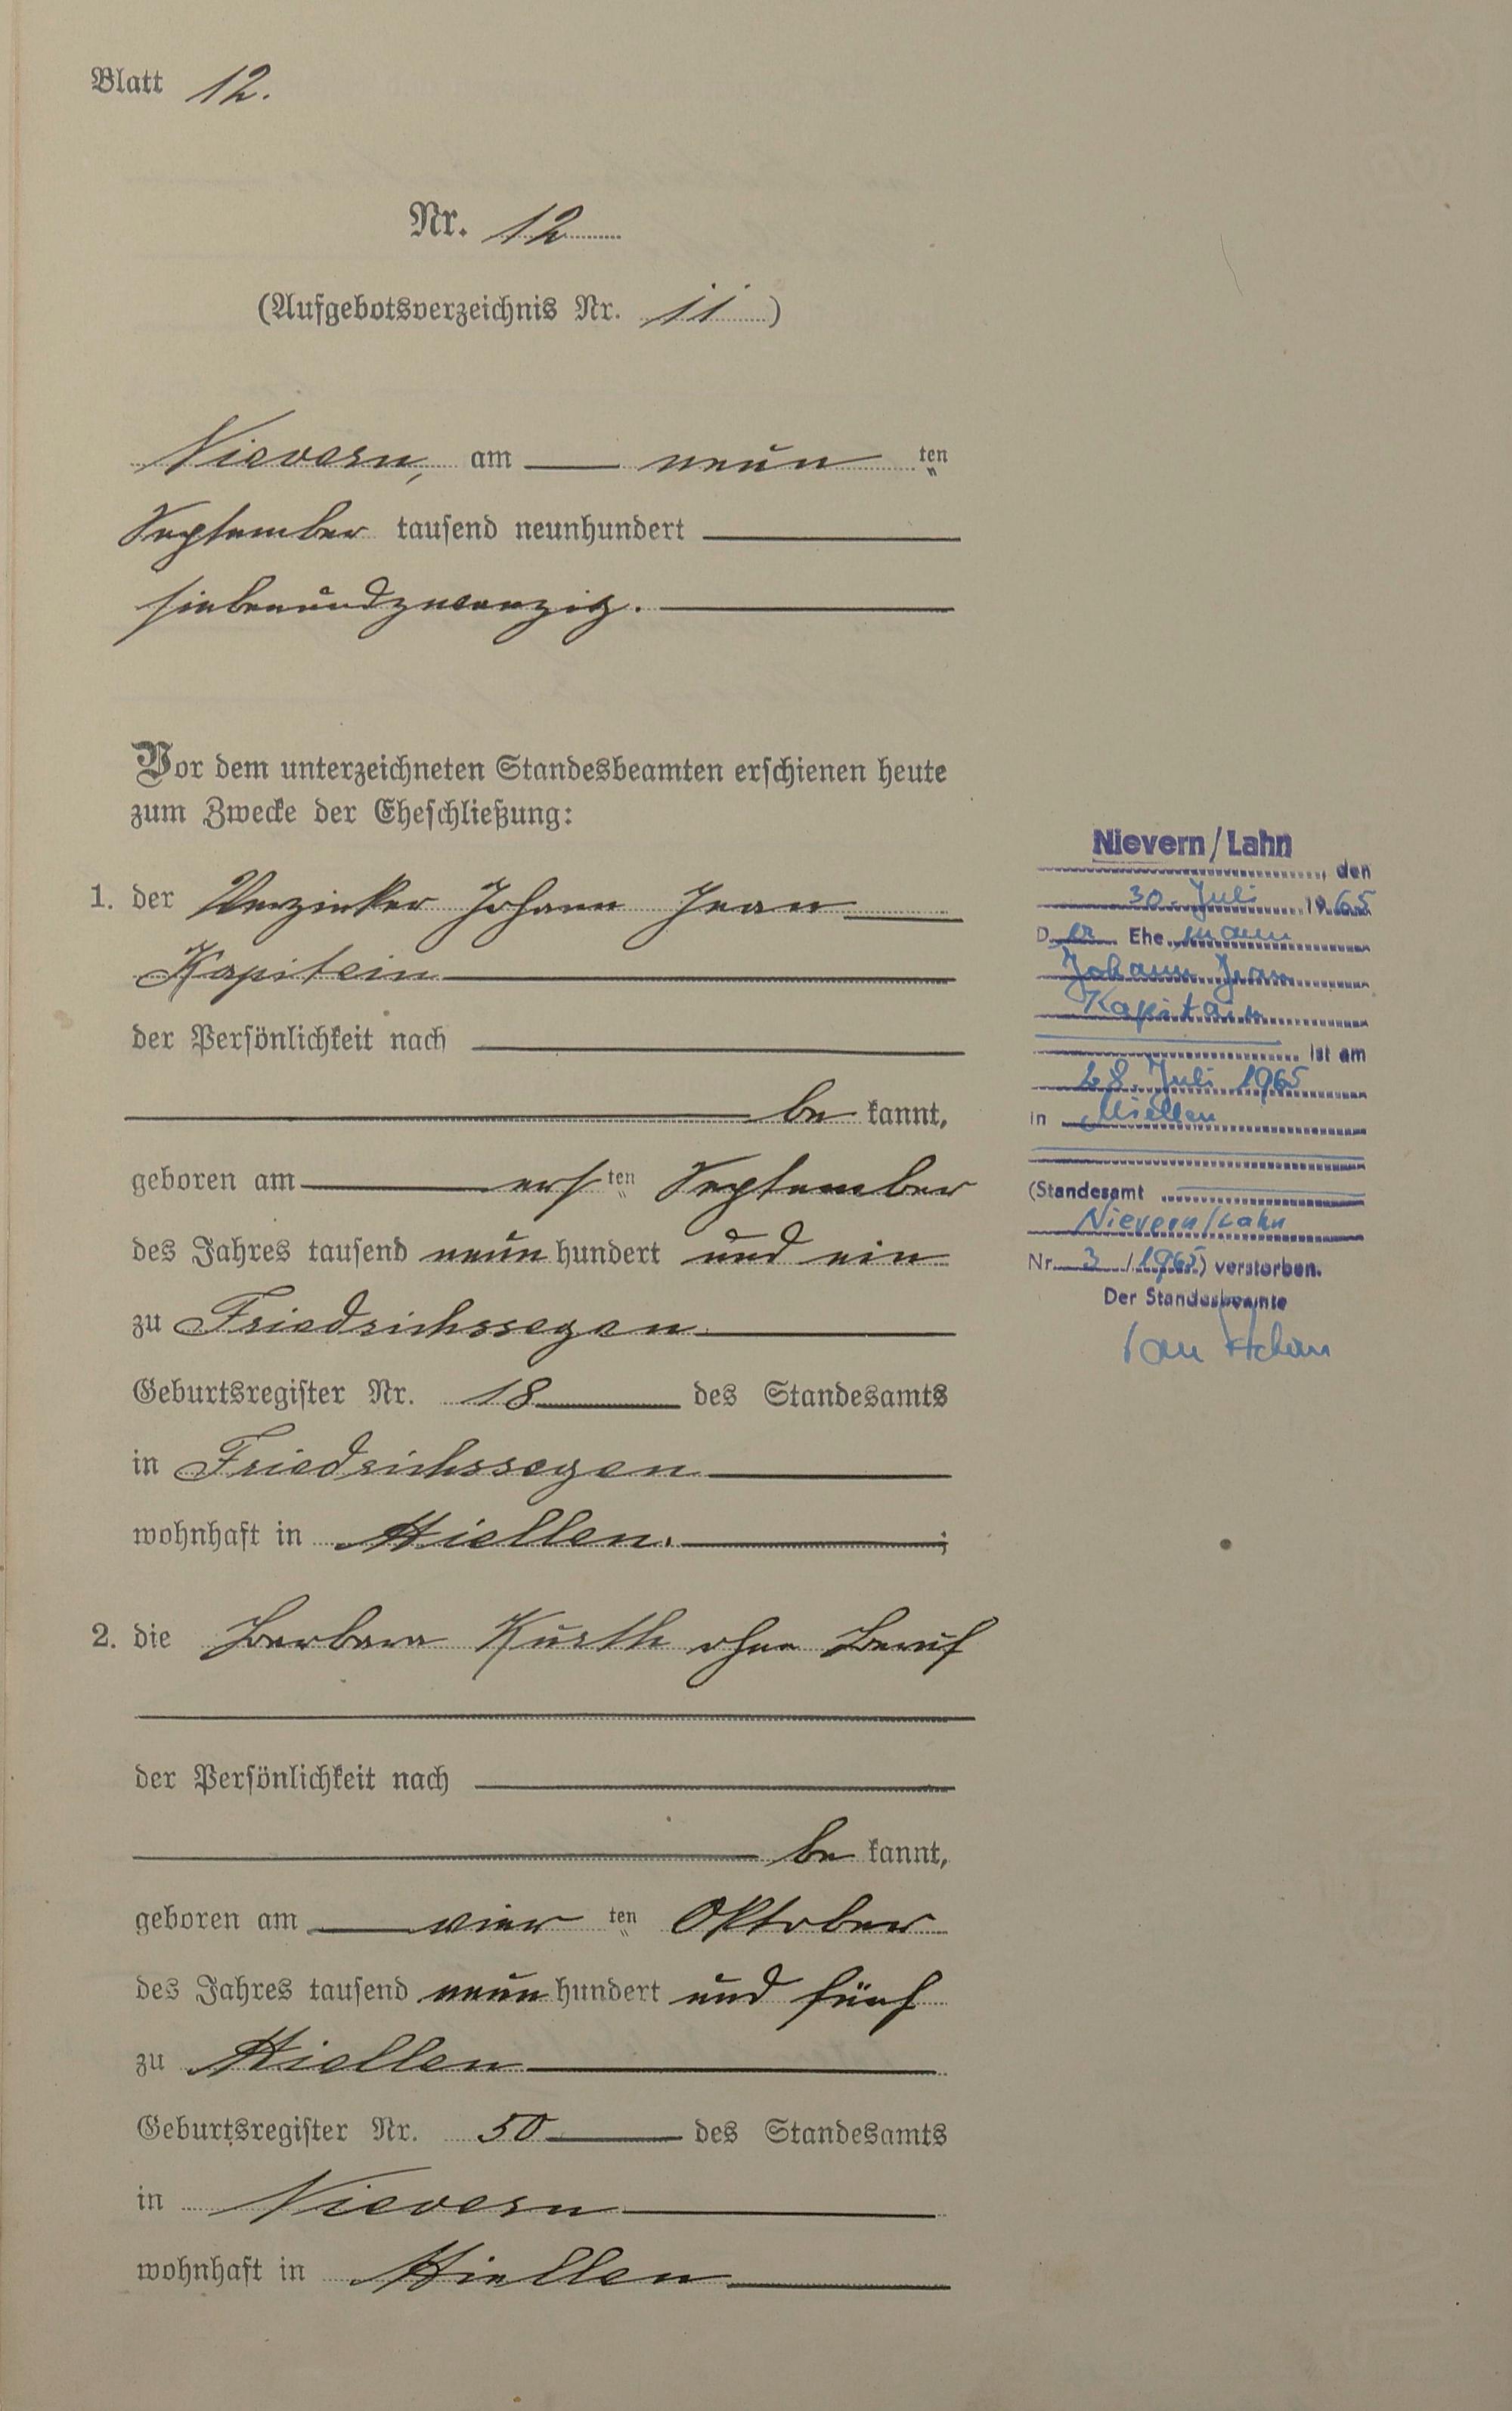 Blatt 12.
Nr. 12
(Aufgebotsverzeichnis Nr. 11)
Nievern, am neun ten
September tausend neunhundert
siebenundzwanzig.
Vor dem unterzeichneten Standesbeamten erschienen heute
zum Zwecke der Eheschließung:
1. der Verzinker Johann Jean
Kapitein
der Persönlichkeit nach
be kannt,
geboren am ers ten September
des Jahres tausend neun hundert und ein
zu Friedrichssegen
Geburtsregister Nr. 18 des Standesamts
in Friedrichssegen
wohnhaft in Miellen. ;
2. die Barbara Kurth ohne Beruf
der Persönlichkeit nach
be kannt,
geboren am vier ten Oktober
des Jahres tausend neun hundert und fünf
zu Miellen
Geburtsregister Nr. 50 des Standesamts
in Nievern
wohnhaft in Miellen
Nievern/Lahn
, den
30. Juli 1965
Der Ehemann
Johann Jean
Kapitain
ist am
28. Juli 1965
in Miellen
(Standesamt
Nievern/Lahn
Nr. 3 / 1965) verstorben.
Der Standesbeamte